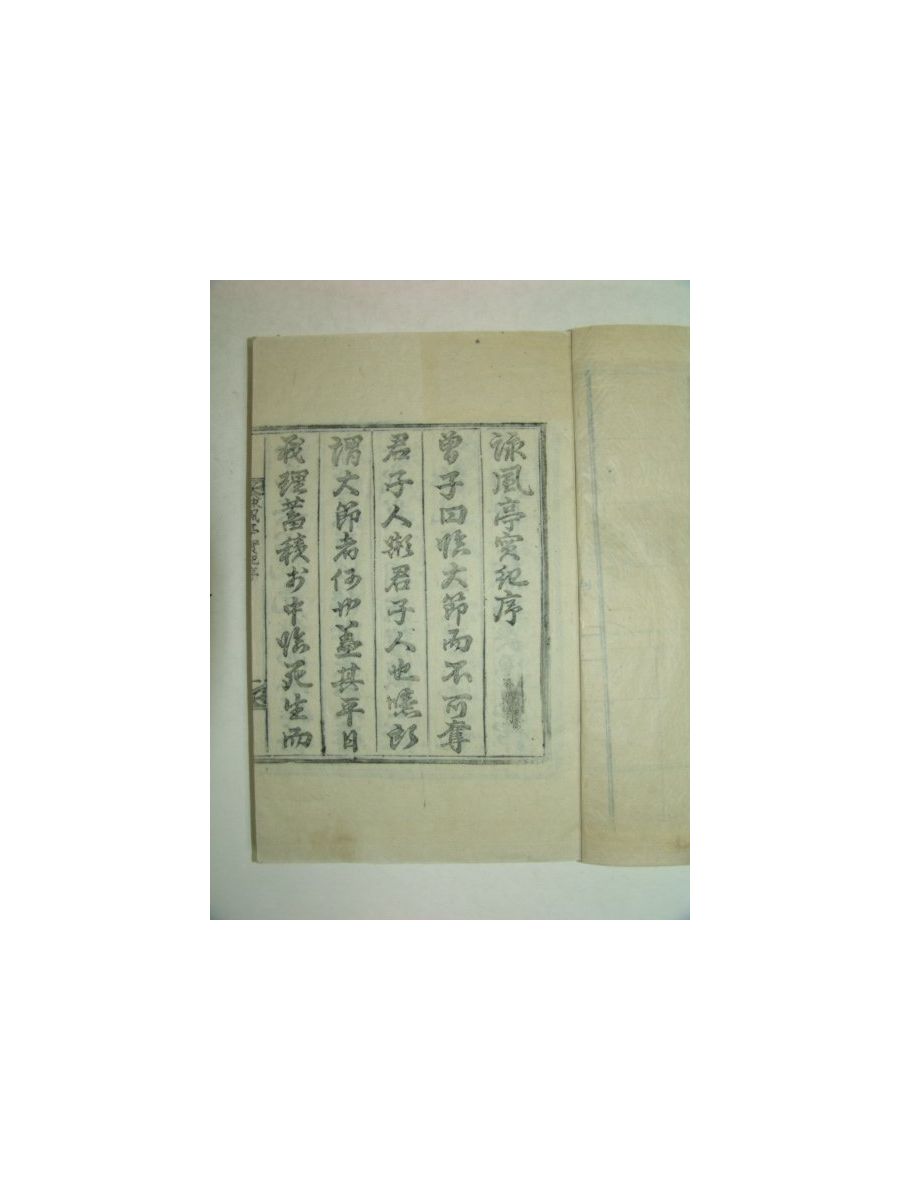 詠風亭實紀序
曾子曰臨大節而不可奪
君子人歟君子人也噫所
謂大節者何也蓋其平日
義理蓄積於中臨死生而
詠風亭實紀序